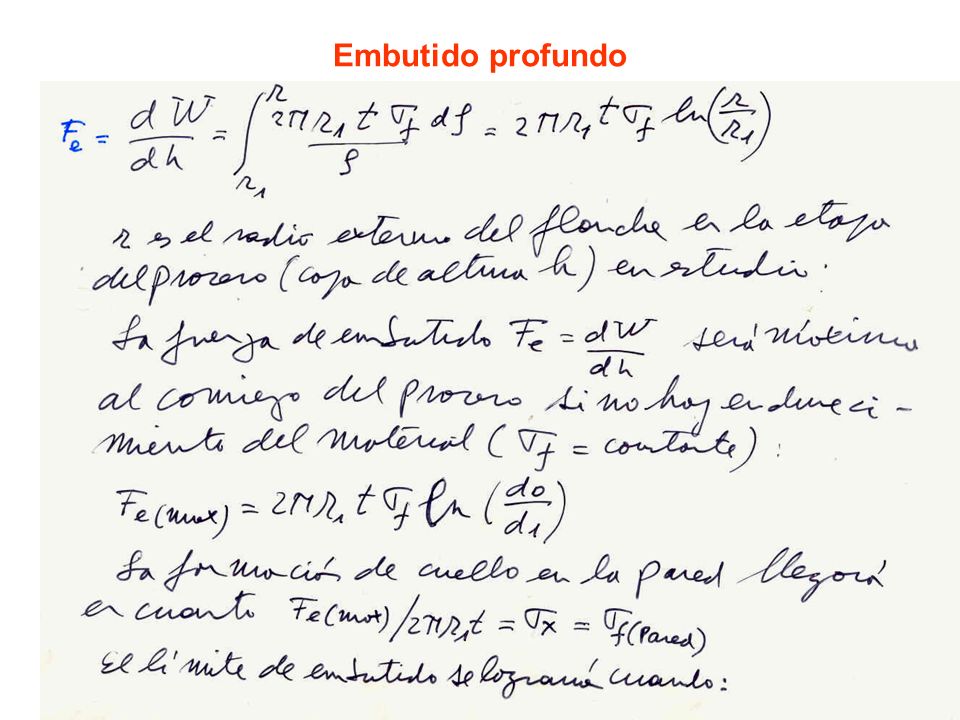 Embutido profundo
Fe = dW/dh = ∫_{r1}^{r} 2πr1 t σf dρ / ρ = 2πr1 t σf ln(r/r1)
r es el radio externo del flanche en la etapa
del proceso (copa de altura h) en estudio.
La fuerza de embutido Fe = dW/dh será máxima
al comienzo del proceso si no hay endureci-
miento del material (σf = constante):
Fe(max) = 2πr1 t σf ln(do/d1)
La formación de cuello en la pared llegará
en cuanto Fe(max)/2πr1t = σx = σf(pared)
El límite de embutido se lograría cuando: